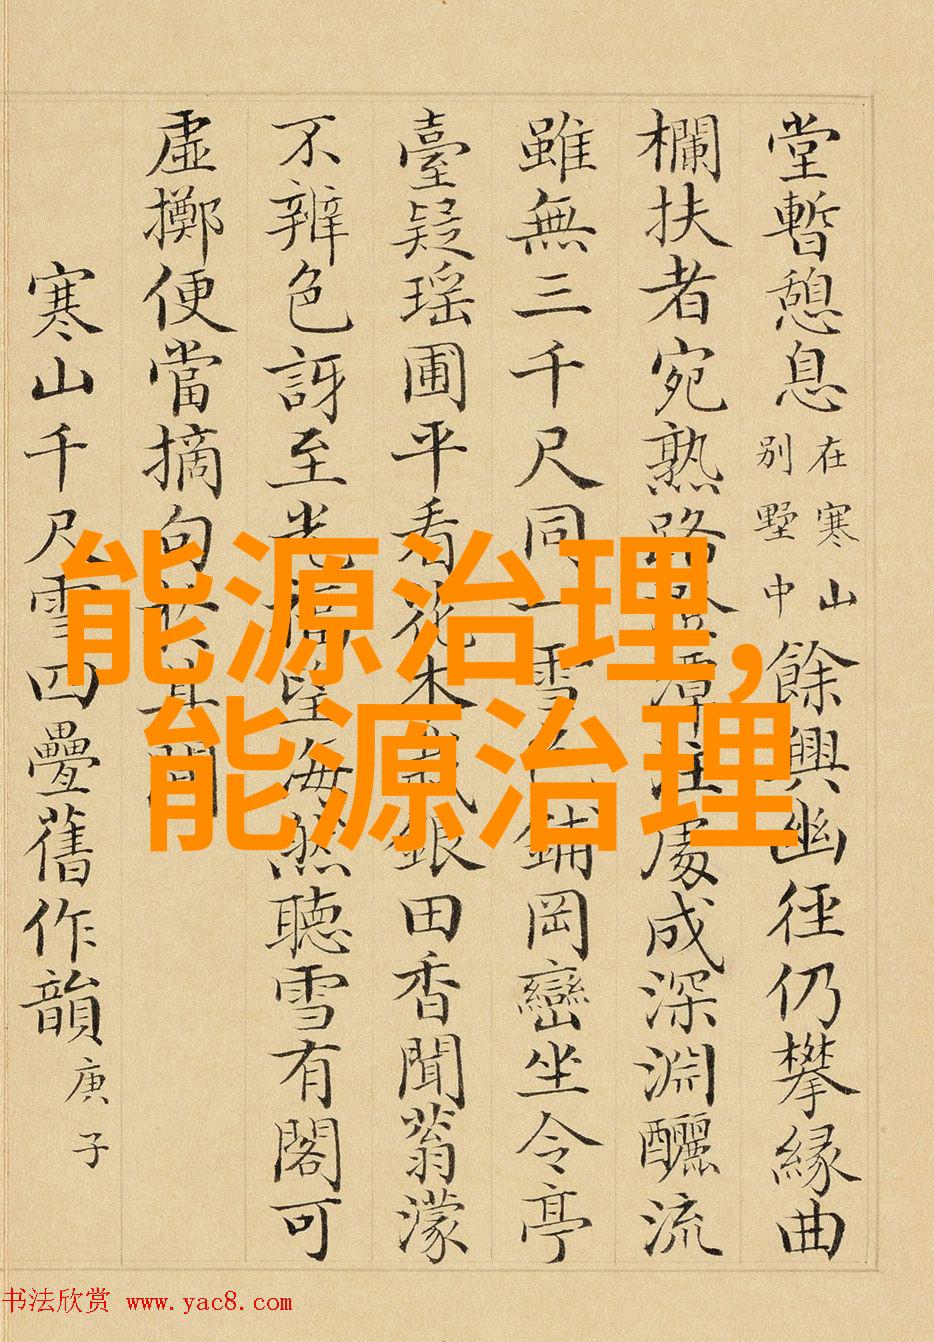 堂暫憩息在寒山別墅中餘興幽徑仍攀緣曲
欄扶者宛熟路潭注處成深淵釃流
雖無三千尺同一雪鋪岡巒坐令亭
臺疑瑤圃平看花木銀田香聞蓊濛
不辨色訝至光望海然聽雪有閣可
虛擲便當摘句其間
寒山千尺雪四疊舊作韻庚子
能源治理,
能源治理
书法欣赏 www.yac8.com